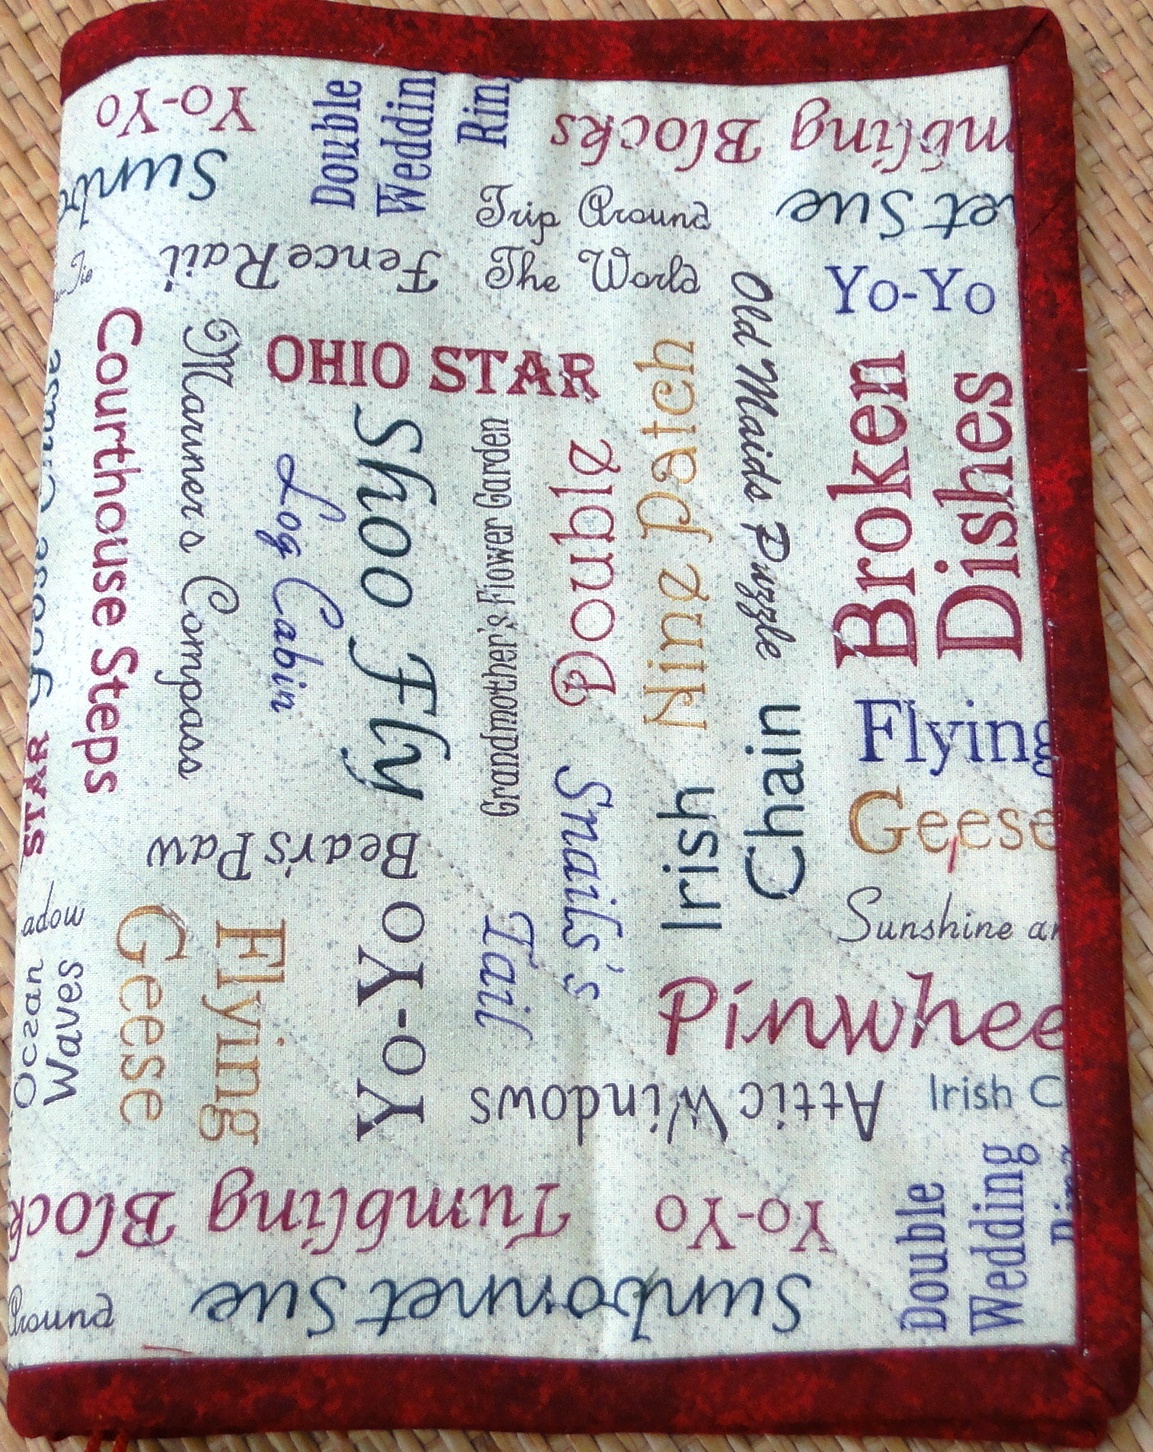 Yo-Yo
Double
Weddin
Rin
mbling Blocks
Sunb
Trip Around
The World
et Sue
Fence Rail
Tie
Yo-Yo
Courthouse Steps
Mariner's Compass
OHIO STAR
Log Cabin
Shoo Fly
Grandmother's Flower Garden
Double
Nine Patch
Old Maids Puzzle
Broken
Dishes
Goose Chase
STAR
Bear's Paw
Snail's
Tail
Irish
Chain
Flying
Geese
adow
Sunshine an
Ocean
Waves
Flying
Geese
Yo-Yo
Pinwhee
Attic Windows
Irish C
Tumbling Block
Yo-Yo
Double
Wedding
Ring
Around
Sunbonnet Sue